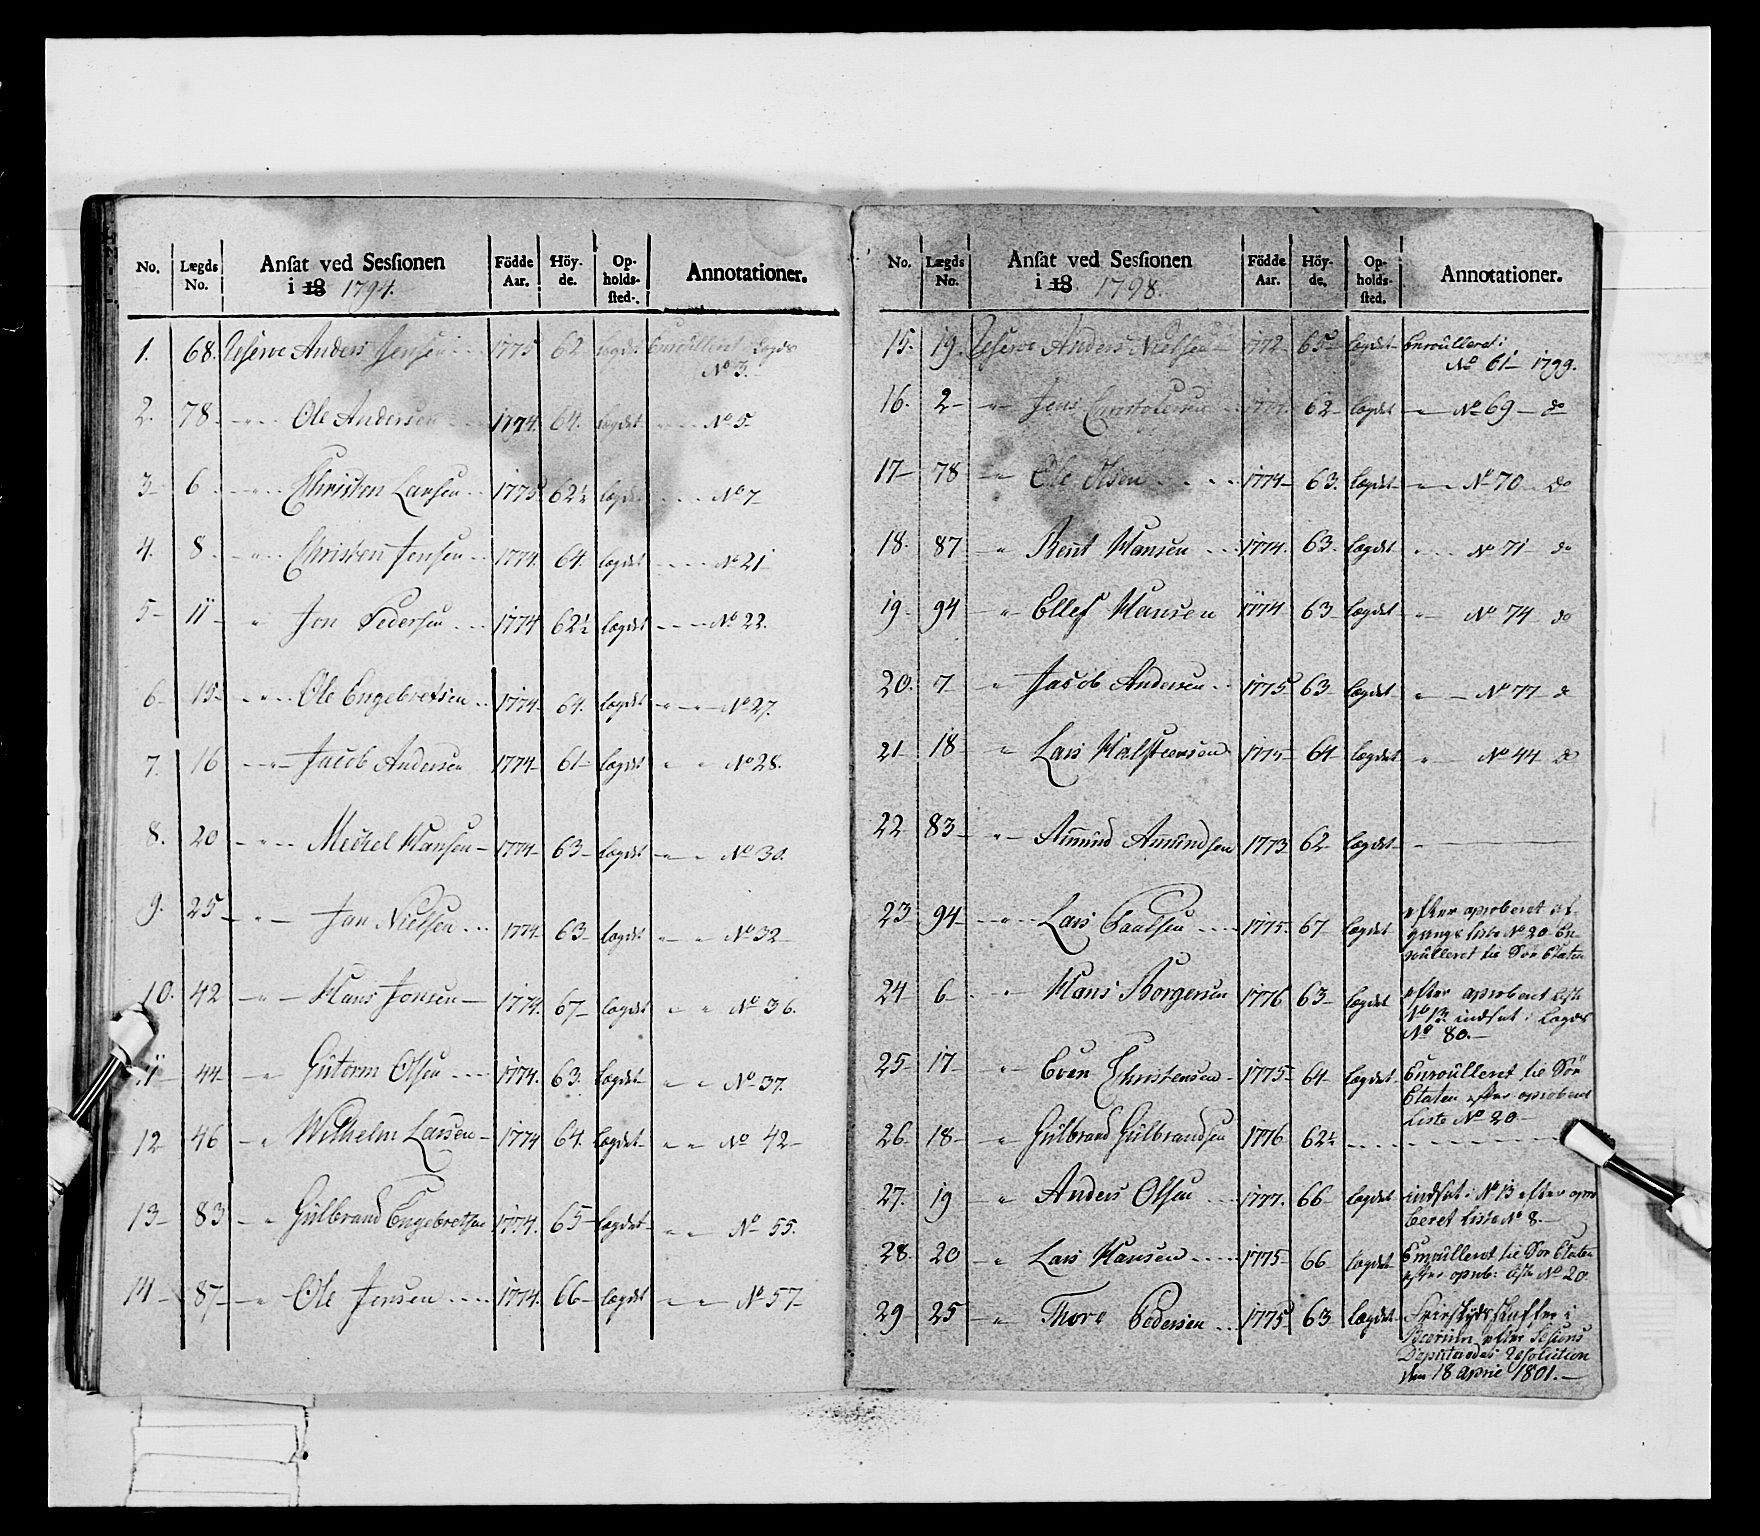 No. Lægds No. Ansat ved Sessionen i 18 1794. Födde Aar. Höyde. Opholdssted. Annotationer.
1. 68. Reserve Anders Jensen 1775 62 Lægdet Enroulleret i Lægds No 3.
2. 78 " Ole Andersen 1774. 64. Lægdet " No 5
3 6 " Christen Larsen 1775 62½ Lægdet No 7
4. 8 " Christen Jensen 1774. 64. lægdet No 21
5 11 " Jon Pedersen 1774 62½ lægdet No 22.
6 15 " Ole Engebretsen 1774 64. lægdet " No 27.
7. 16 " Jacob Andersen 1774 61 lægdet " " No 28.
8. 20 " Mickel Hansen 1774 63 lægdet " " No 30.
9. 25 " Jan Nielsen 1774 63 lægdet " " No 32
10. 42 " Hans Jonsen 1774. 67 lægdet " " No 36.
11 44 " Gütorm Olsen 1774. 63. lægdet " " No 37.
12 46 " Wilhelm Larsen 1774 64. lægdet " " No 42
13 83 " Gülbrand Engebretsen 1774. 65 lægdet " " No 55.
14 87 " Ole Jensen 1774. 66 lægdet " " No 57
No. Lægds No. Ansat ved Sessionen i 18 1798. Födde Aar. Höyde. Opholdssted. Annotationer.
15. 19. Reserve Anders Nielsen 1772 65 lægdet Enroulleret i
No 61 1799.
16. 2 " Jens Christofersen 62 lægdet " No 69 do
17 78 " Ole Olsen 1774 63. lægdet " No 70 do
18. 87 " Bent Hansen 1774. 63. lægdet " No 71 do
19. 94 " Ellef Hansen 1774 63 lægdet " No 74 do
20. 7 " Jacob Andersen 1775 63 lægdet " No 77 do
21 18 " Lars Halsteensen 1775 64 lægdet " No 44 do
22 83 " Amünd Amündsen 1773 62 lægdet
23 94 " Lars Paulsen 1775 67 lægdet efter aproberet af-
gangs liste No 20 En-
roulleret til Söe Etaten
24 6 " Hans Borgersen 1776 63 lægdet efter aproberet liste
No 13. indsat i Lægds
No 80.
25 17 " Even Christensen 1775 64 lægdet Enroulleret til Söe
Etaten efter aproberet
Liste No 20
26. 18 " Gülbrand Gülbrandsen 1776 62½
27. 19 " Anders Olsen 1777. 66 lægdet indsat i No 13 efter apro
beret liste No 8.
28. 20 " Lars Hansen 1775 66 lægdet Enroulleret til Söe Etaten
efter aprob: liste No 20
29 25 " Thore Pedersen 1775 63 lægdet i
Bærum efter Sesions
Deputeredes Resolution
den 18 April 1801.